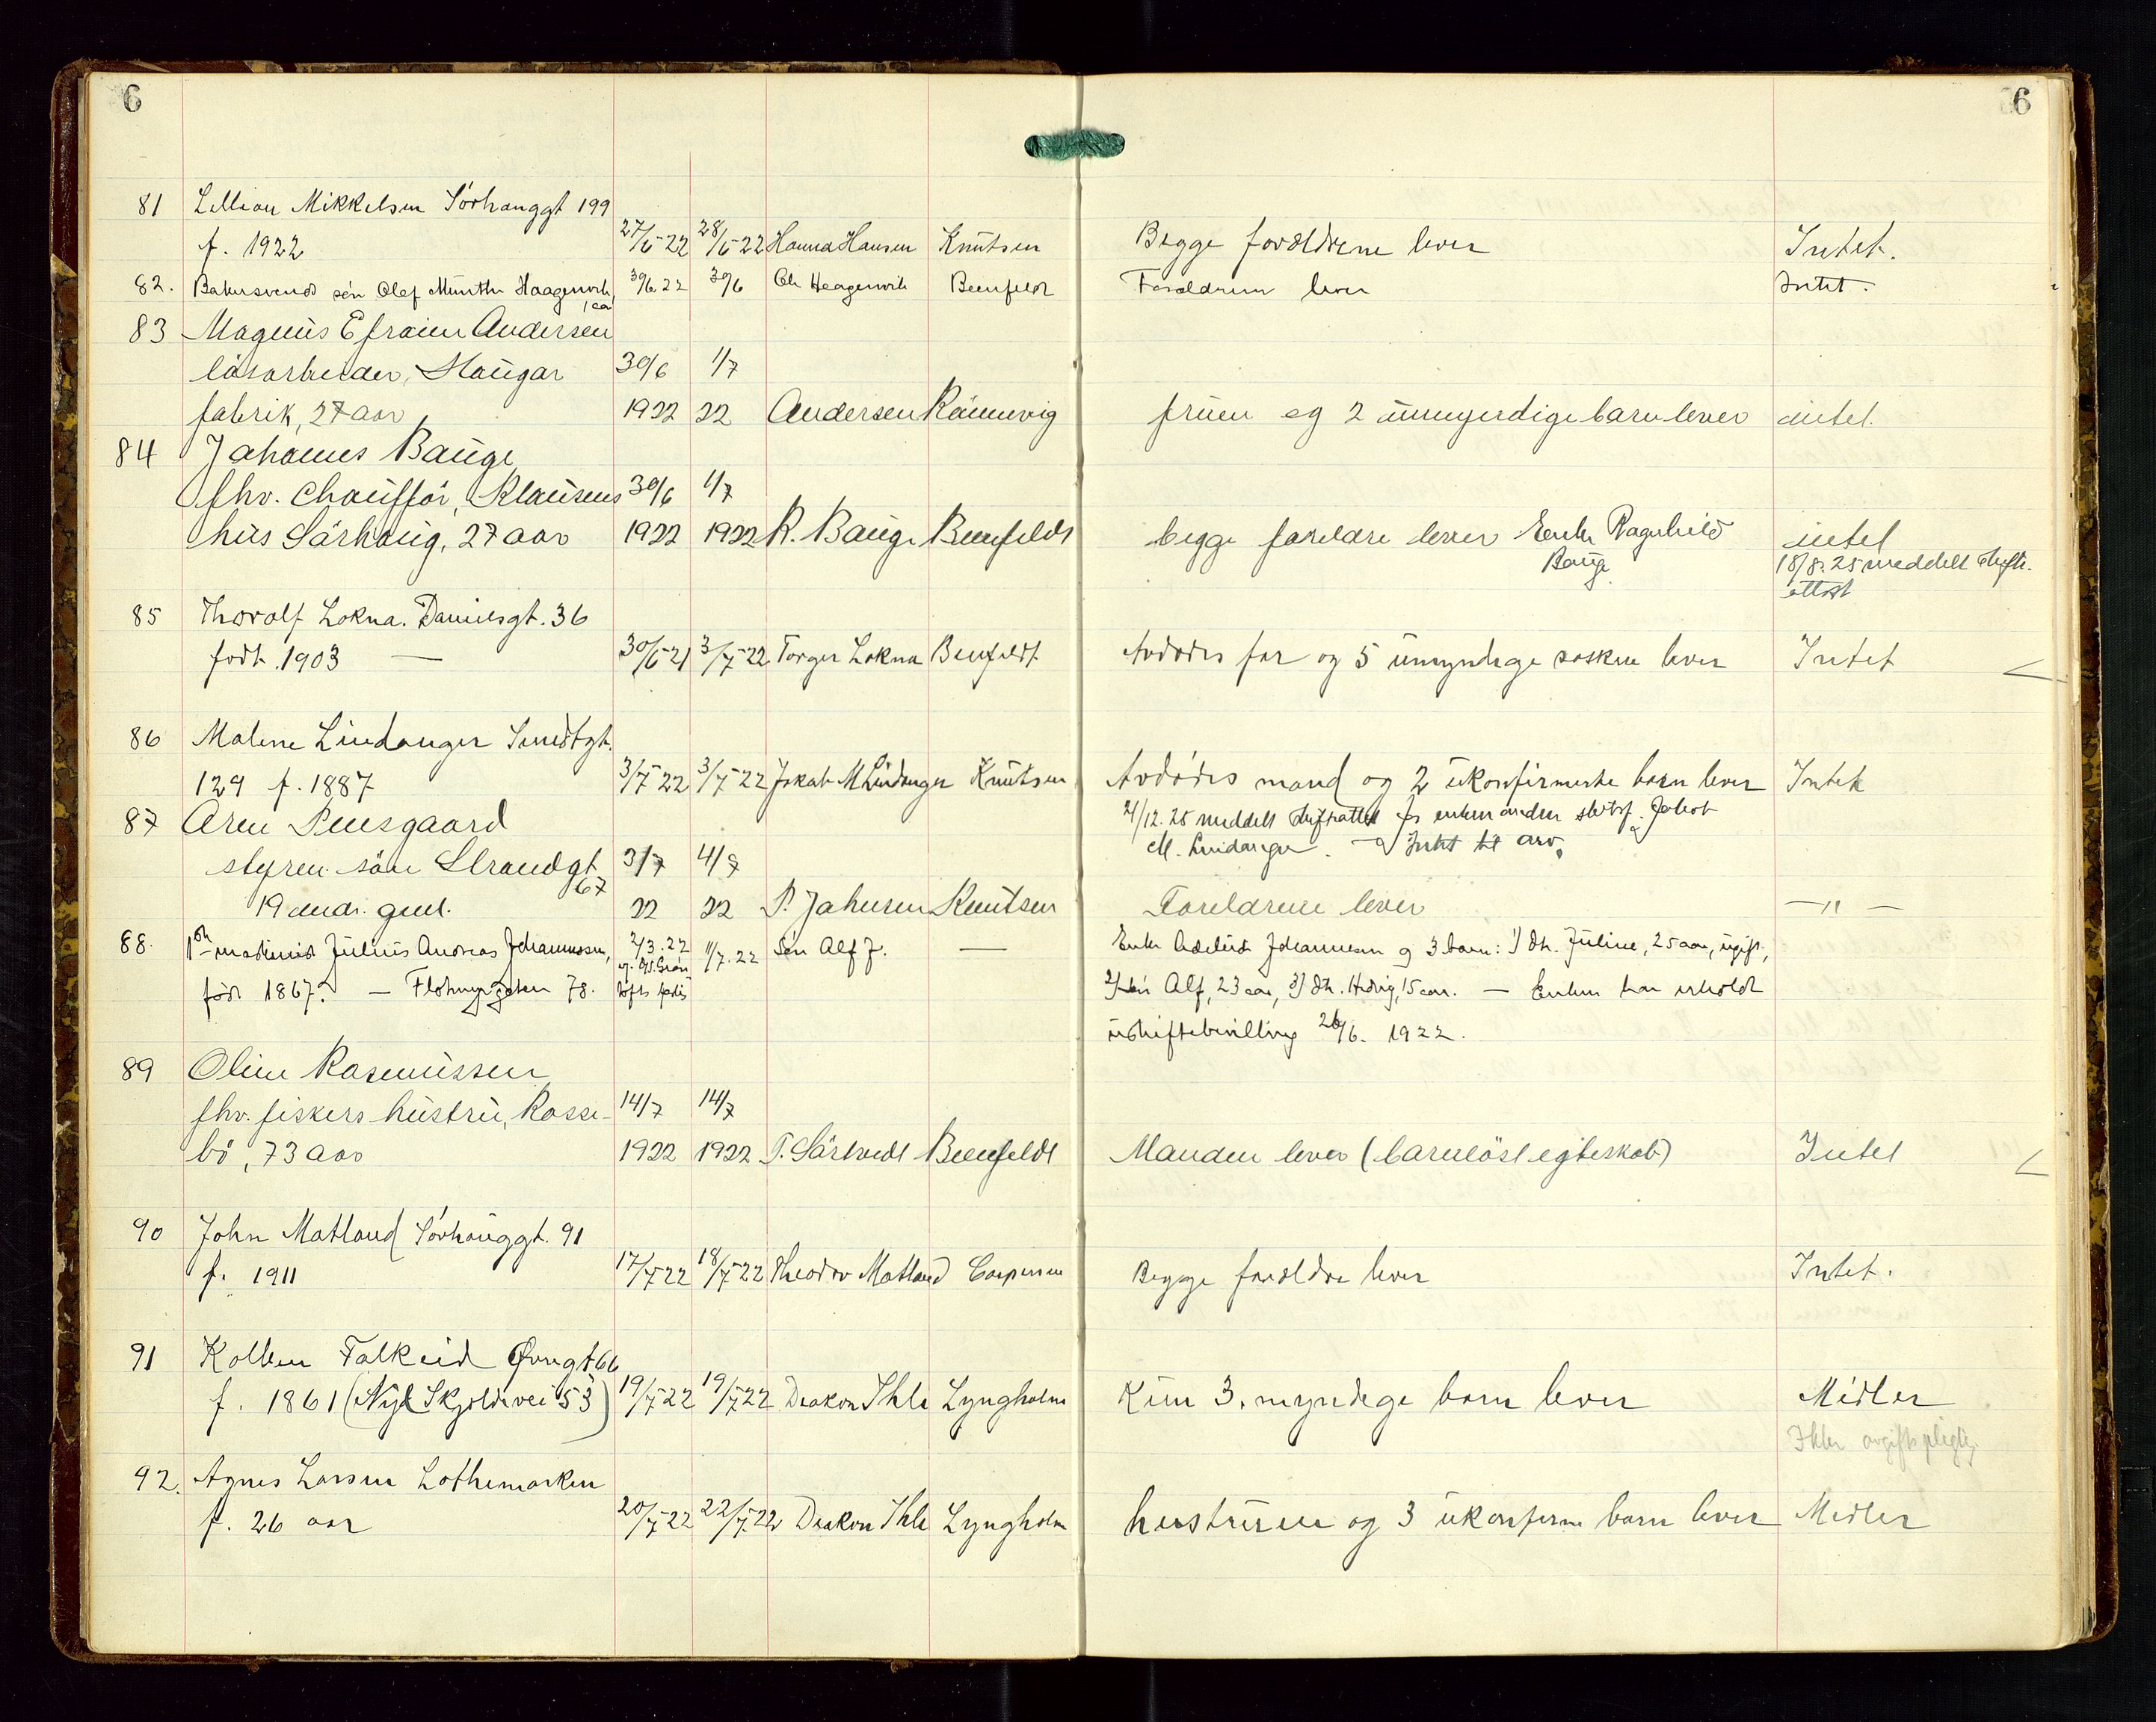 6
6
81 Lillian Mikkelsen Sörhauggt 199
f. 1922 27/6-22 28/6-22 Hanna Hansen Knutsen Begge forældrene lever Intet.
82. Bakersvend sön Olaf Münthe Haagenvik, 30/6 22 30/6 Ole Haagenvik Beenfeldt Forældrene lever Intet.
83 Magnus Efraim Andersen
lösarbeider, Haugar 30/6 1/7
fabrik, 27 aar 1922 22 Andersen Rönnevig fruen og 2 umyndige barn lever intet.
84 Johannes Bauge,
fhv. chaufför, Klausens 30/6 1/7
hus Sörhaug, 27 aar 1922 1922 R. Bauge Beenfeldt begge foreldre lever Enke Ragnhild intet
Bauge 18/8.25 meddelt skifte-
attest
85 Thoralf Lokna. Danielsgt. 36
födt 1903 — 30/6-21 3/7-22 Torger Lokna Beenfeldt Avdödes far og 5 umyndige sosken lever Intet
86 Malene Lindanger Smedtgt.
129 f. 1887 3/7-22 3/7-22 Jakob M Lindanger Knutsen Avdödes mand og 2 ukonfirmerte barn lever Intet
87 Arne 21/12.25 meddelt skifteattest for enkemanden Jakob
styrm. sön Strandgt 3/7 4/7 M. Lindanger. — Intet til arv.
67
19 mdr. gml. 22 22 P. Johnsen Knutsen Foreldrene lever — " —
88. 1ste maskinist Julius Andreas Johannessen, 2/3.22 11/7.22 Sön Alf J. — Enke Johannesen og 3 barn: 1) dtr. Juline, 25 aar, ugift,
född 1867. — Flotmyrgaten 78. 2) sön Alf, 23 aar, 3) dtr. Hedvig, 15 aar. — Enken har erholdt
uskiftebevilling 26/6. 1922.
89 Oline Rasmussen
fhv. fiskers hustru, Rosse- 14/7 14/7
bö, 73 aar 1922 1922 T. Sörhvedt Beenfeldt Manden lever (barnlöst egteskab) Intet
90 John Matland Sörhauggt. 91
f. 1911 17/7-22 18/7-22 Theodor Matland Caspersen Begge forældre lever Intet.
91 Kolben Falkeid Övregt 66
f. 1861 (Nye Skjoldavei 53) 19/7-22 19/7-22 Diakon Ihle Lyngholm Kun 3. myndige barn lever Midler
Ikke avgiftspligtig
92. Agnes Larsen Lothemarken
f. 26 aar 20/7-22 22/7-22 Diakon Ihle Lyngholm hustruen og 3 ukonfirm barn lever Midler